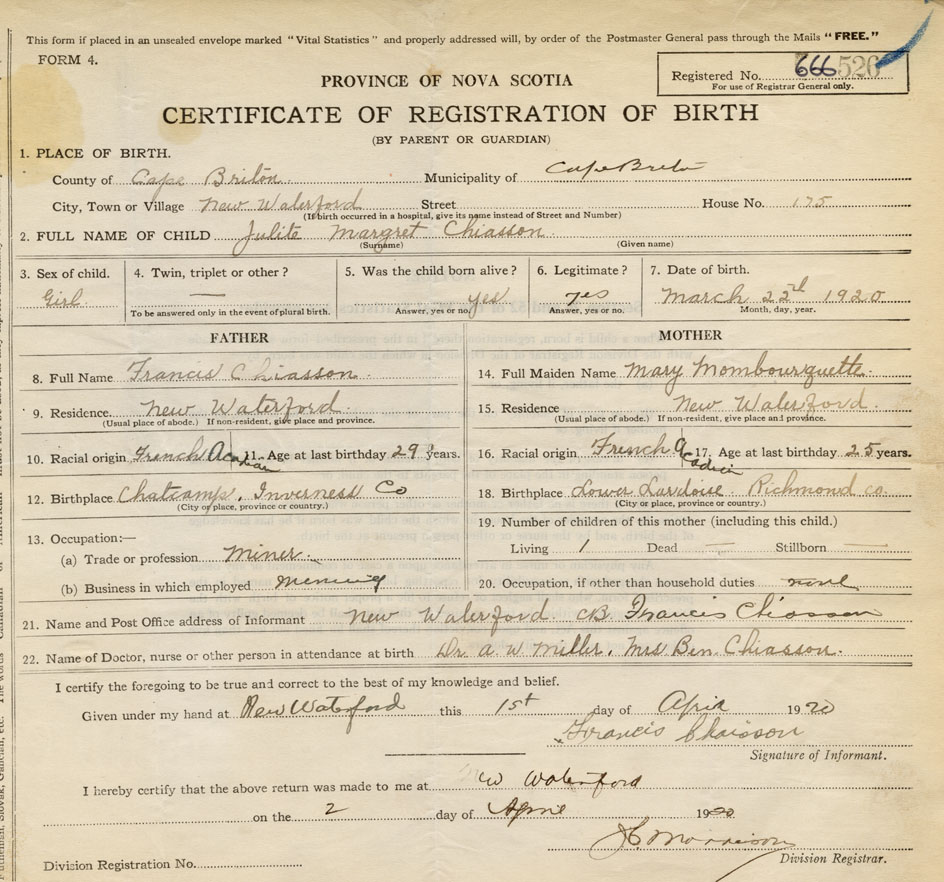 This form if placed in an unsealed envelope marked "Vital Statistics" and properly addressed will, by order of the Postmaster General pass through the Mails "FREE."
FORM 4.
Registered No. 666 526
For use of Registrar General only.
PROVINCE OF NOVA SCOTIA
CERTIFICATE OF REGISTRATION OF BIRTH
(BY PARENT OR GUARDIAN)
1. PLACE OF BIRTH.
County of Cape Briton Municipality of Cape Breton
City, Town or Village New Waterford Street House No. 175
(If birth occurred in a hospital, give its name instead of Street and Number)
2. FULL NAME OF CHILD Julite Margret Chiasson
(Surname) (Given name)
3. Sex of child. 4. Twin, triplet or other? 5. Was the child born alive? 6. Legitimate? 7. Date of birth.
Girl — yes yes March 22nd 1920
To be answered only in the event of plural birth. Answer, yes or no. Answer, yes or no. Month, day, year.
FATHER MOTHER
8. Full Name Francis Chiasson 14. Full Maiden Name Mary Mombourquette
9. Residence New Waterford 15. Residence New Waterford
(Usual place of abode.) If non-resident, give place and province. (Usual place of abode.) If non-resident, give place and province.
10. Racial origin French Acadian 11. Age at last birthday 29 years. 16. Racial origin French Acadien 17. Age at last birthday 25 years.
12. Birthplace Chatcamp, Inverness Co 18. Birthplace Lower Lardoise Richmond co.
(City or place, province or country.) (City or place, province or country.)
13. Occupation:— 19. Number of children of this mother (including this child.)
(a) Trade or profession Miner Living 1 Dead — Stillborn —
(b) Business in which employed 20. Occupation, if other than household duties none
21. Name and Post Office address of Informant New Waterford CB Francis Chiasson
22. Name of Doctor, nurse or other person in attendance at birth Dr. A. W Miller, Mrs Ben. Chiasson.
I certify the foregoing to be true and correct to the best of my knowledge and belief.
Given under my hand at New Waterford this 1st day of April 1920
Francis Chaisson
Signature of Informant.
I hereby certify that the above return was made to me at New Waterford
on the 2 day of April 1920
Morrison
Division Registration No. Division Registrar.